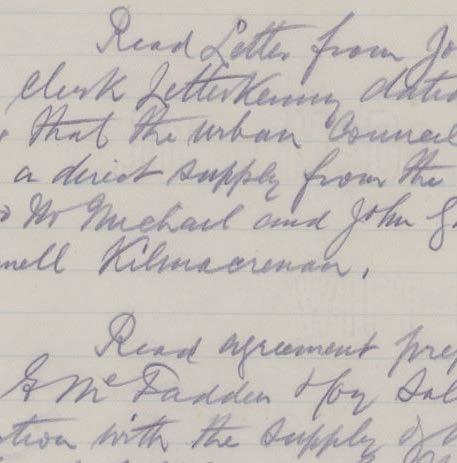 Read Letter from Jo
Clerk Letterkenny dated
that the Urban Council
a direct supply from the
to Mr Michael and John G
nell Kilmacrenan.
Read agreement prep
G McFadden Sol
ction with the supply of